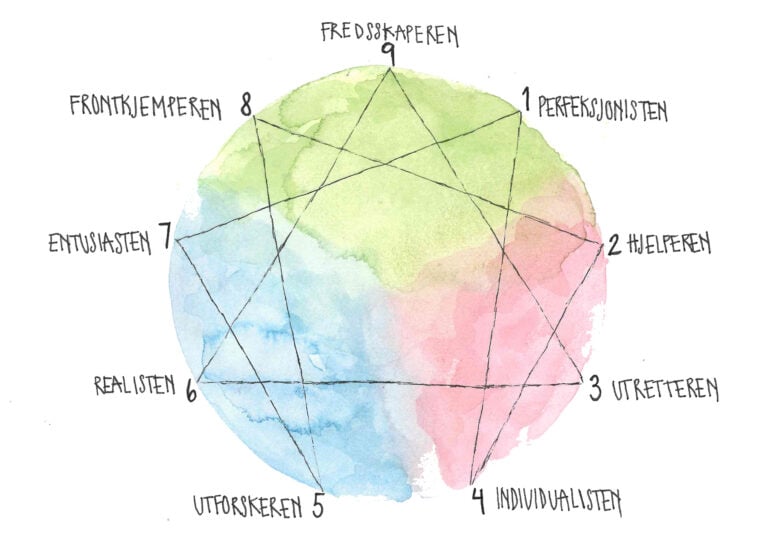 FREDSSKAPEREN
9
FRONTKJEMPEREN 8
1 PERFEKSJONISTEN
ENTUSIASTEN 7
2 HJELPEREN
REALISTEN 6
3 UTRETTEREN
UTFORSKEREN 5
4 INDIVIDUALISTEN